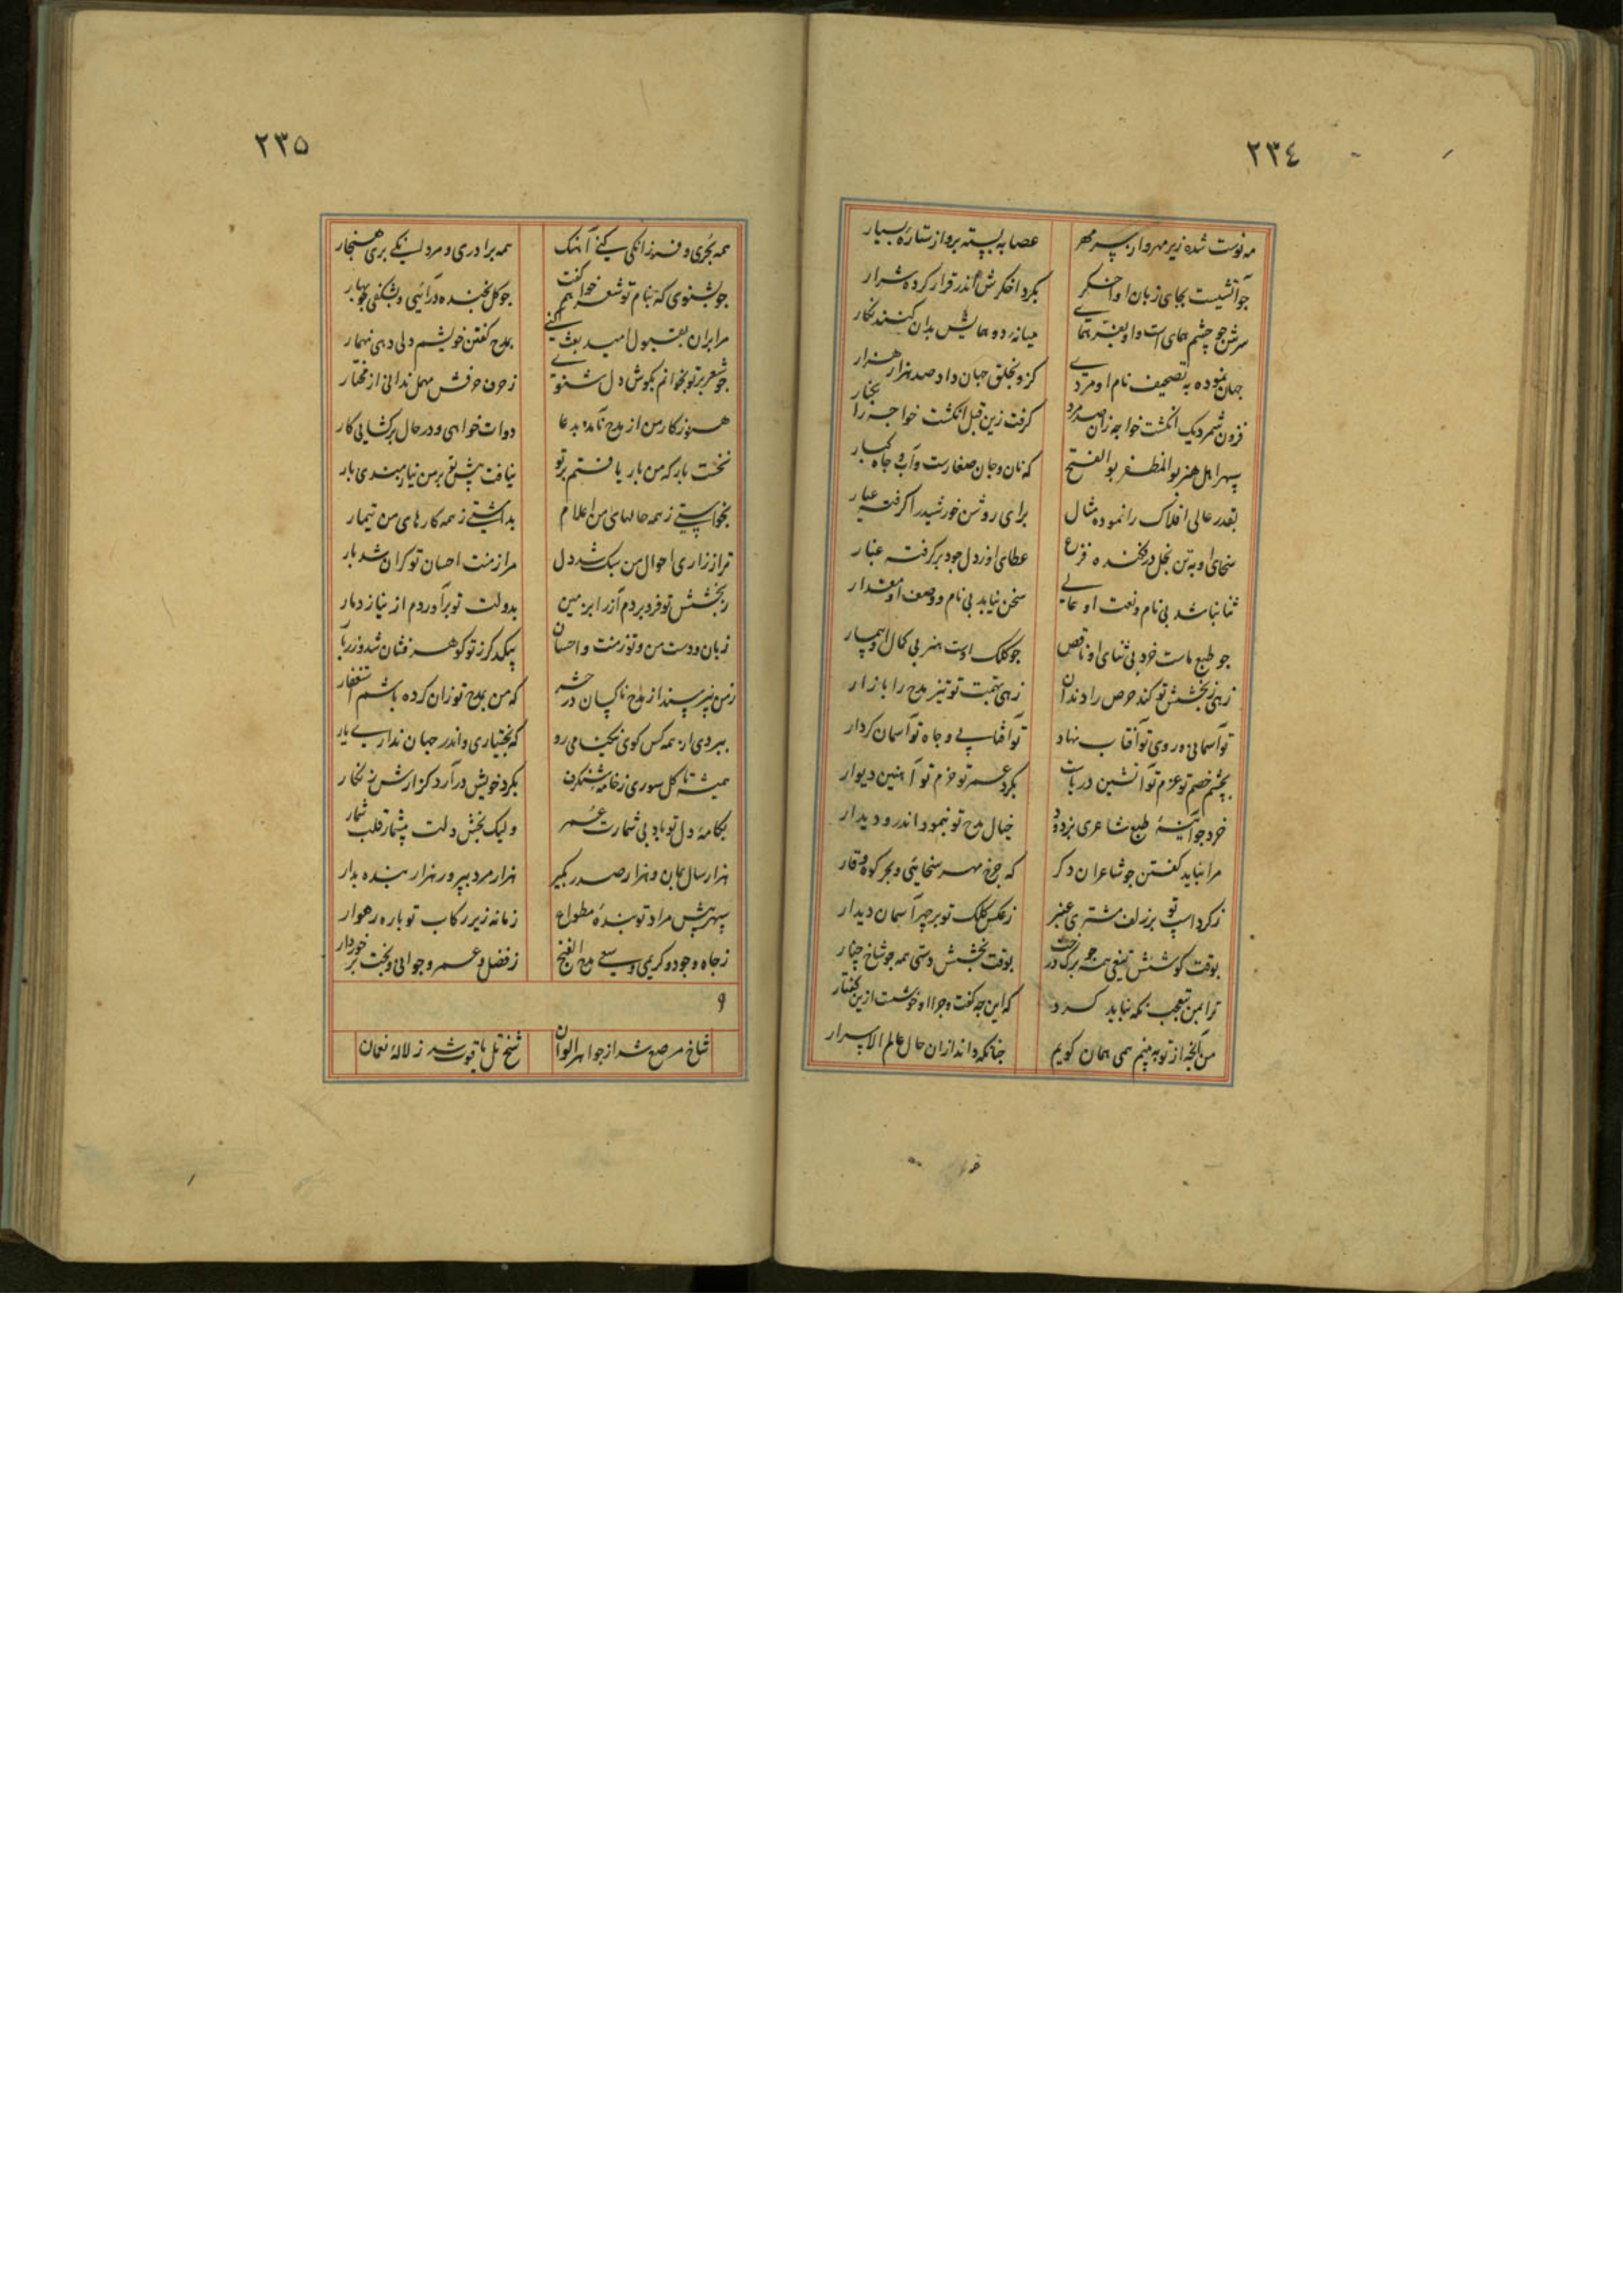 ٢٣٤
مه نوست شده زیر مهر وار پسر مهر عصابه بسته برو از ستاره بسیار
جو آتشیست بجای زبان او اخکر بکرد اخکرش اندر قرار کرده شرار
سرش جو چشم همای است و او بفر همای میانه دو همایش بدان کنند نکار
جهان نبوده به تصحیف نام او مردی کز و بخلق جهان داد صد هزار هزار
فزون شمرد یک انکشت خواجه زان صد مرد کرفت زین قبل انکشت خواجه را بکنار
سپهر اهل هنر بو المظفر بو الفتح که نان و جان صغارست و آب و جاه کبار
بقدر عالی افلاک را نموده مثال برای روشن خورشید را کرفته عیار
سخای او به تن بخل در فکنده فزع عطای او ز دل جود بر کرفته غبار
ثنا نباشد بی نام و نعت او عالی سخن نیابد بی نام و وصف او مقدار
جو طبع ماست خرد بی ثنای او ناقص جو کلک اوست هنر بی کمال او بیمار
زهی ز بخشش تو کند حرص را دندان زهی بهمت تو تیز مدح را بازار
تو آسمانی و روی تو آفتاب نهاد تو آفتابی و جاه تو آسمان کردار
بچشم خصم تو عزم تو آتشین دریاست بکرد عمر تو حزم تو آهنین دیوار
خرد جو آینهٔ طبع شاعری بزدود خیال مدح تو بنمود اندرو دیدار
مرا نباید کفتن جو شاعران دکر که جرخ مهر سخایی و بحر کوه وقار
ز کرد اسپ تو بر زلف مشتری عنبر ز عکس کلک تو بر چهر آسمان دیدار
بوقت کوشش تیغی همه جو برک درخت بوقت بخشش دستی همه جو شاخ چنار
ترا بمن تعجب نکه نباید کرد که این جه کفت و جرا او خوشست ازین کفتار
من آنچه از تو ببینم همی همان کویم جنانکه داند ازان حال عالم الاسرار
٢٣٥
همه بحری و فرزانکی کنی آهنک همه برادری و مردانکی بری هنجار
جو بشنوی که بنام تو شعر خواهم کفت جو کل بخنده درآئی و بشکفی جو بهار
مرا بران بقبول امید بعث کنی بمدح کفتن خویشم دلی دهی نهمار
جو شعر بر تو بخوانم بکوش دل شنوی ز حرف حرفش مهمل ندانی از مختار
هنوز کار من از مدح نامده بدعا دوات خواهی و در حال برکشایی کار
نخست بار که من بار یافتم بر تو نیافت پیش تو بر من نیازمندی بار
بخواستی ز همه حالهای من اعلام بداشتی ز همه کارهای من تیمار
ترا ز زاری احوال من سبک شد دل مرا ز منت احسان تو کران شد بار
ز بخشش تو فرو بردم آز را بزمین بدولت تو برآوردم از نیاز دمار
زبان و دست من و تو ز منت و احسان یکی کهر ز تو کوهر فشان شد و زربار
ز من نپرسند از مدح ناکسان در حشر که من بمدح تو زان کرده باشم استغفار
ببردی از همه کس کوی نیکنامی زود که بختیاری و اندر جهان نداری یار
همیشه تا کل سوری ز خامهٔ شنکرف بکرد خویش درآرد کزارش زنکار
بکامهٔ دل تو باد بی شمارت عمر ولیک بخش دلت بیشمار قلب شمار
هزار سال بمان و هزار صدر بکیر هزار مرد بپرور هزار بنده بدار
سپهر پیش مراد تو بندهٔ مطواع زمانه زیر رکاب تو باره رهوار
ز جاه وجود و کریمی و سعی مدح الفتح ز فضل و عمر و جوانی و بخت برخوردار
٩
شاخ مرصع شد از جواهر الوان شخ تل یاقوت شد ز لالهٔ نعمان